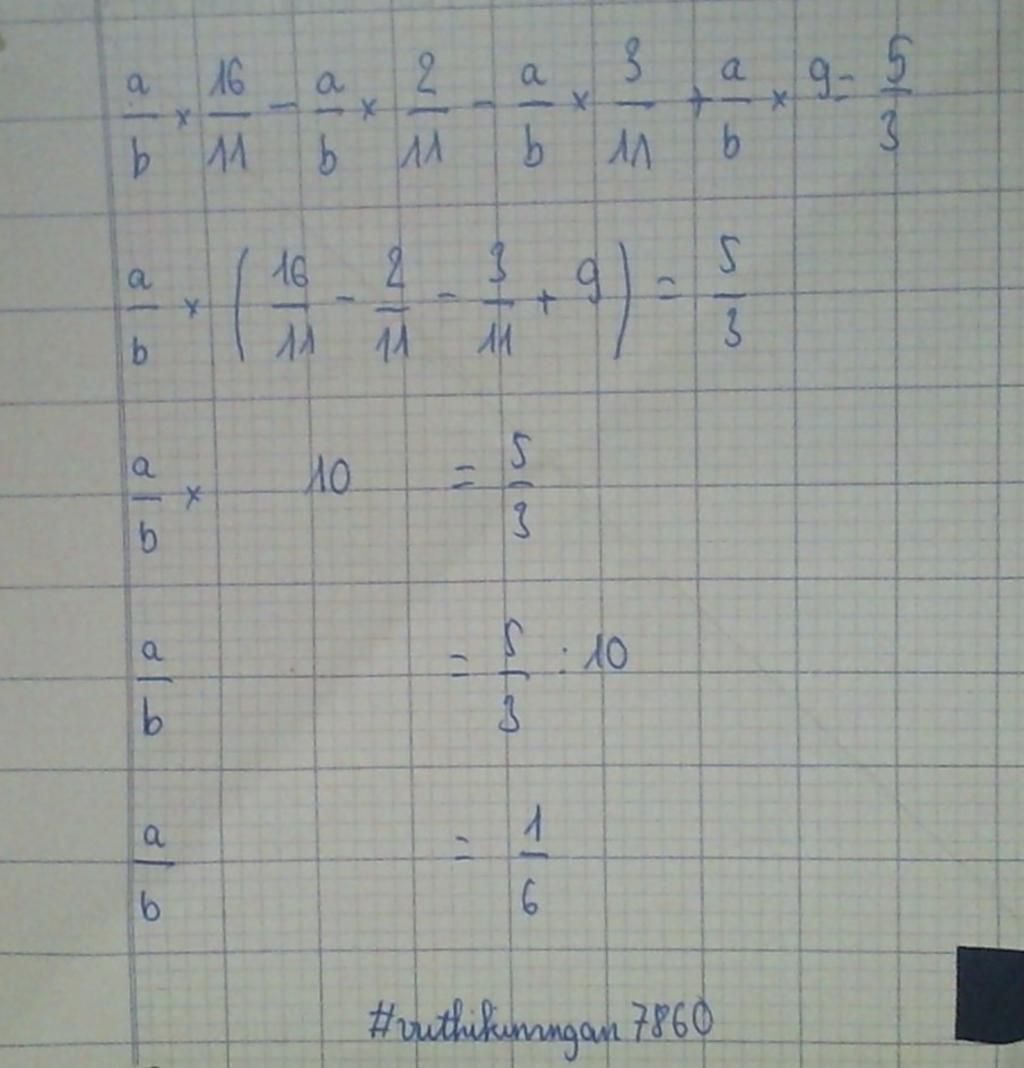 a/b × 16/11 - a/b × 2/11 - a/b × 3/11 + a/b × 9 = 5/3
a/b × ( 16/11 - 2/11 - 3/11 + 9 ) = 5/3
a/b × 10 = 5/3
a/b = 5/3 : 10
a/b = 1/6
#vuthikimngan7860